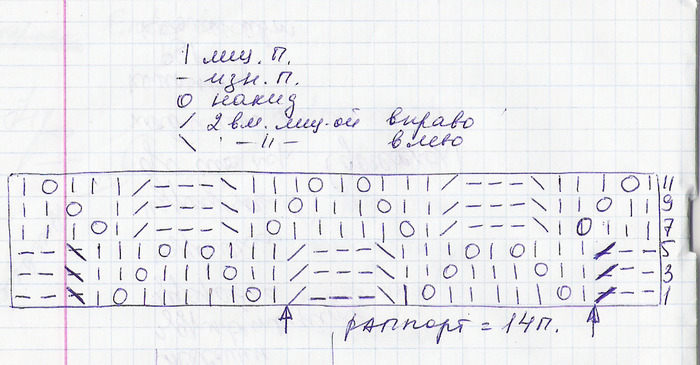 | лиц. п.
– изн. п.
O накид
/ 2 вм. лиц-ой вправо
\ –||– влево
| O | | | / – – – \ | | | O | O | | | / – – – \ | | | O | 11
| | O | | / – – – \ | | O | | | O | | / – – – \ | | O | | 9
| | | O | / – – – \ | O | | | | | O | / – – – \ | O | | | 7
– – \ | | | O | O | | | / – – – \ | | | O | O | | | / – – 5
– – \ | | O | | | O | | / – – – \ | | O | | | O | | / – – 3
– – \ | O | | | | | O | / – – – \ | O | | | | | O | / – – 1
раппорт = 14п.